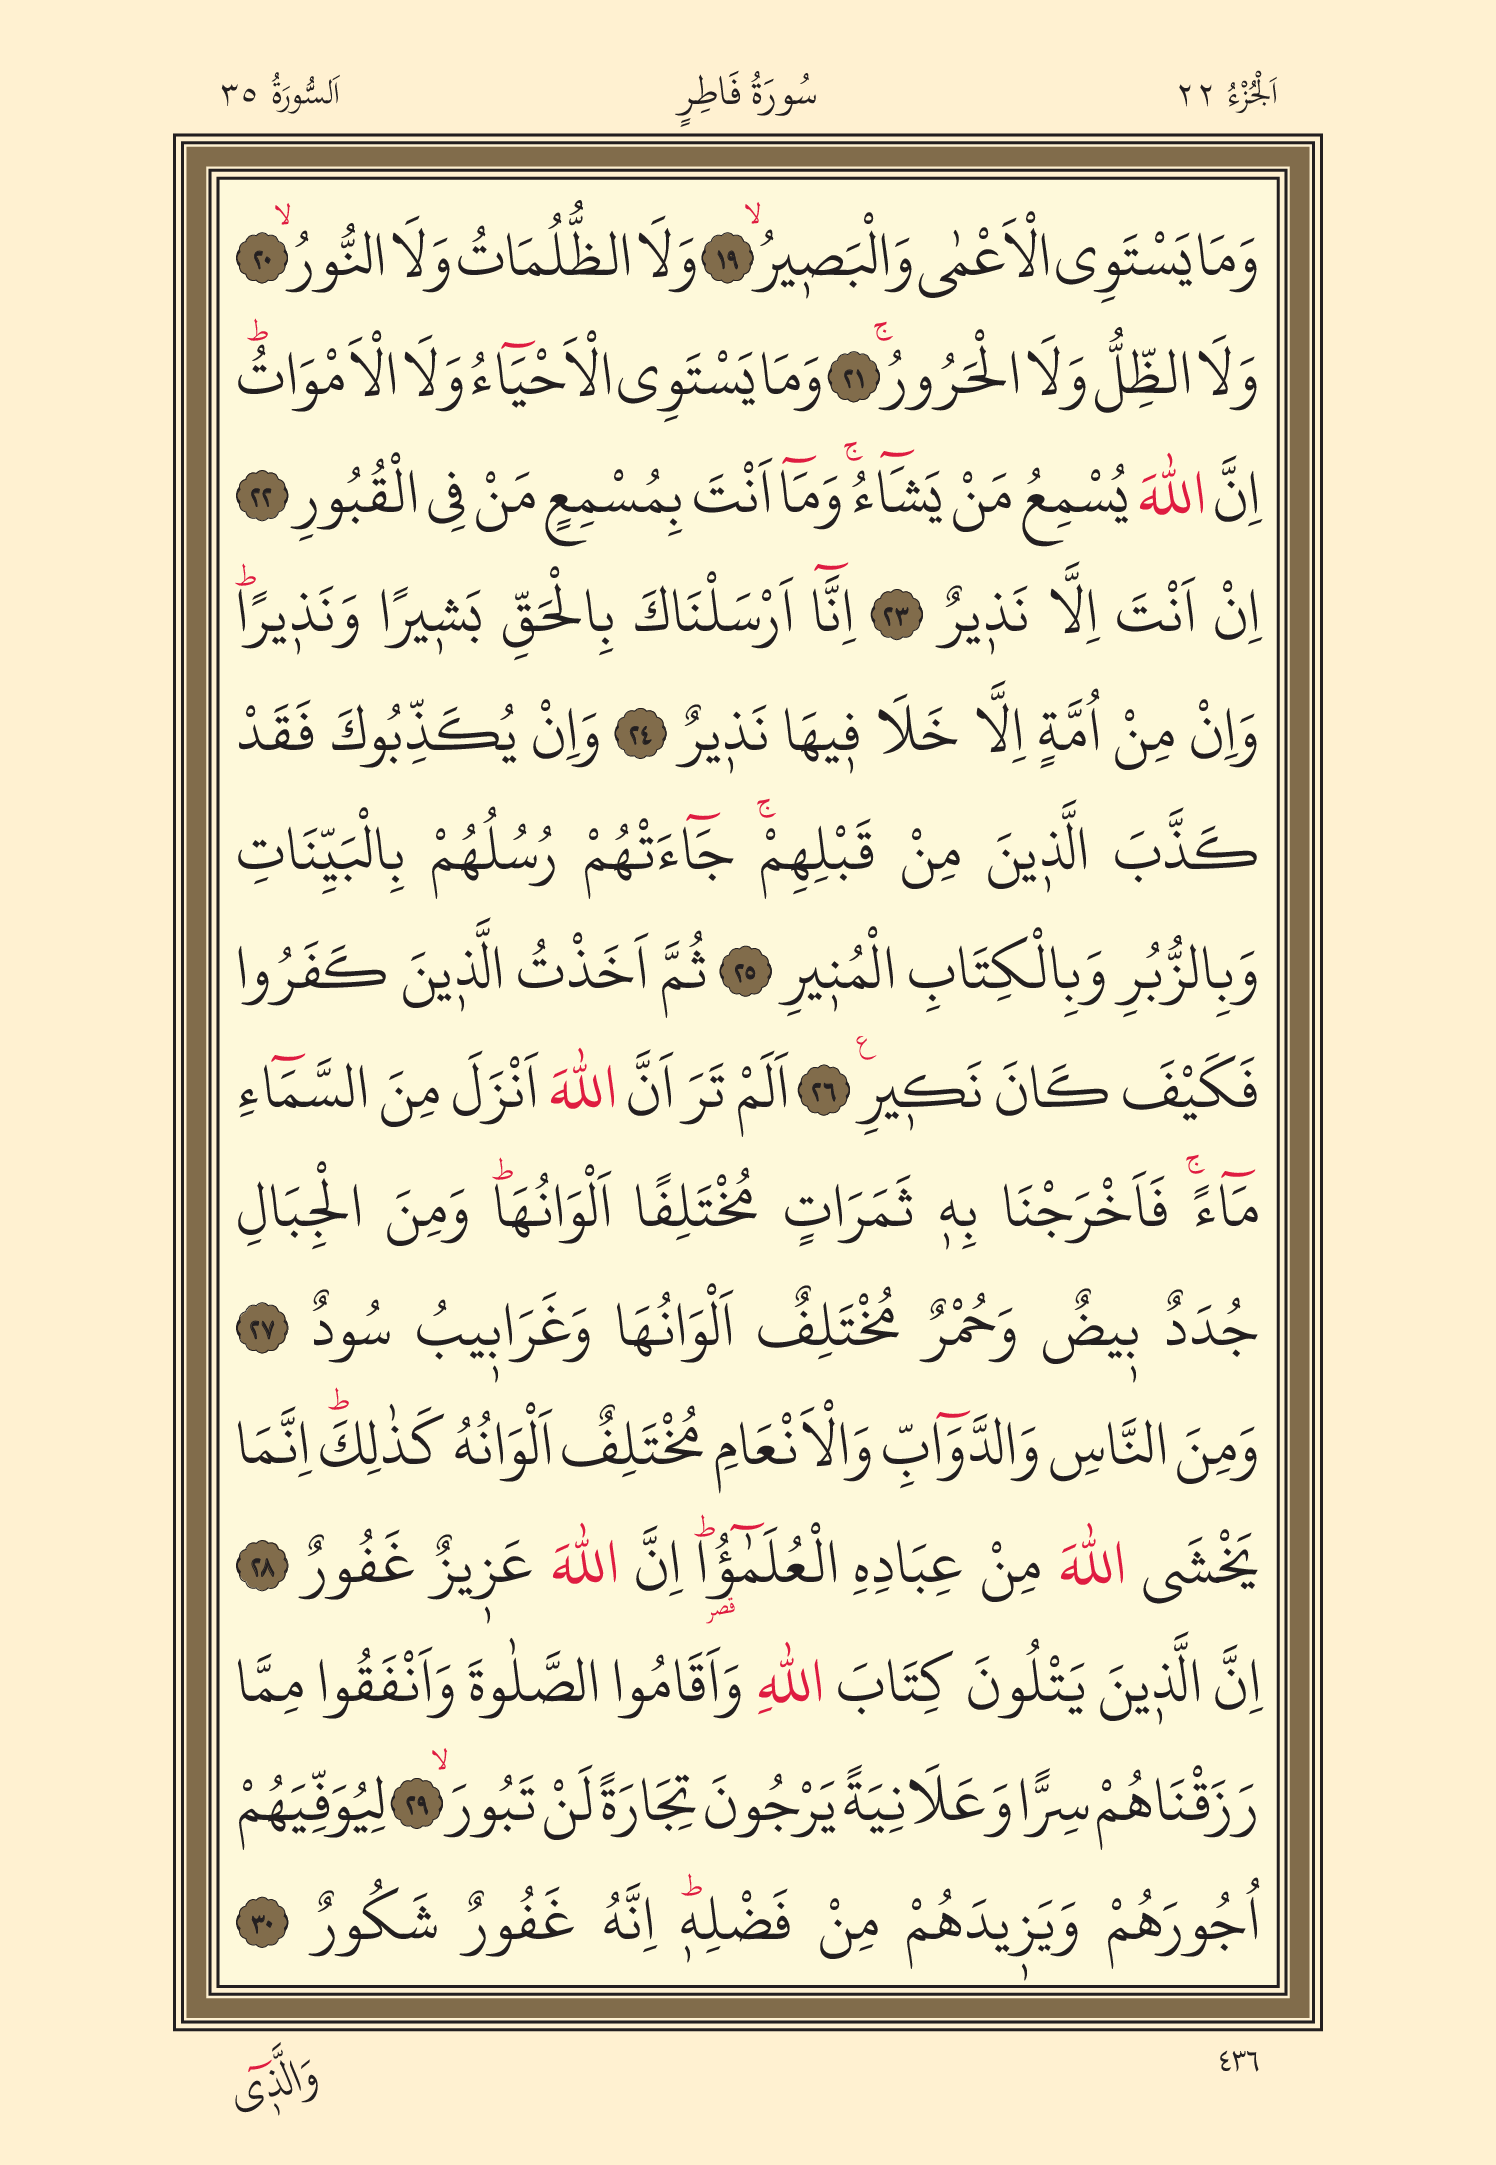 اَلْجُزْءُ ٢٢
سُورَةُ فَاطِرٍ
اَلسُّورَةُ ٣٥
وَمَا يَسْتَوِى الْاَعْمٰى وَالْبَصٖيرُۙ ١٩ وَلَا الظُّلُمَاتُ وَلَا النُّورُۙ ٢٠
وَلَا الظِّلُّ وَلَا الْحَرُورُۚ ٢١ وَمَا يَسْتَوِى الْاَحْيَٓاءُ وَلَا الْاَمْوَاتُؕ
اِنَّ اللّٰهَ يُسْمِعُ مَنْ يَشَٓاءُۚ وَمَٓا اَنْتَ بِمُسْمِعٍ مَنْ فِى الْقُبُورِ ٢٢
اِنْ اَنْتَ اِلَّا نَذٖيرٌ ٢٣ اِنَّٓا اَرْسَلْنَاكَ بِالْحَقِّ بَشٖيرًا وَنَذٖيرًاؕ
وَاِنْ مِنْ اُمَّةٍ اِلَّا خَلَا فٖيهَا نَذٖيرٌ ٢٤ وَاِنْ يُكَذِّبُوكَ فَقَدْ
كَذَّبَ الَّذٖينَ مِنْ قَبْلِهِمْۚ جَٓاءَتْهُمْ رُسُلُهُمْ بِالْبَيِّنَاتِ
وَبِالزُّبُرِ وَبِالْكِتَابِ الْمُنٖيرِ ٢٥ ثُمَّ اَخَذْتُ الَّذٖينَ كَفَرُوا
فَكَيْفَ كَانَ نَكٖيرِ ع ٢٦ اَلَمْ تَرَ اَنَّ اللّٰهَ اَنْزَلَ مِنَ السَّمَٓاءِ
مَٓاءًۚ فَاَخْرَجْنَا بِهٖ ثَمَرَاتٍ مُخْتَلِفًا اَلْوَانُهَاؕ وَمِنَ الْجِبَالِ
جُدَدٌ بٖيضٌ وَحُمْرٌ مُخْتَلِفٌ اَلْوَانُهَا وَغَرَابٖيبُ سُودٌ ٢٧
وَمِنَ النَّاسِ وَالدَّوَٓابِّ وَالْاَنْعَامِ مُخْتَلِفٌ اَلْوَانُهُ كَذٰلِكَؕ اِنَّمَا
يَخْشَى اللّٰهَ مِنْ عِبَادِهِ الْعُلَمٰٓؤُ۬اؕ قصر اِنَّ اللّٰهَ عَزٖيزٌ غَفُورٌ ٢٨
اِنَّ الَّذٖينَ يَتْلُونَ كِتَابَ اللّٰهِ وَاَقَامُوا الصَّلٰوةَ وَاَنْفَقُوا مِمَّا
رَزَقْنَاهُمْ سِرًّا وَعَلَانِيَةً يَرْجُونَ تِجَارَةً لَنْ تَبُورَۙ ٢٩ لِيُوَفِّيَهُمْ
اُجُورَهُمْ وَيَزٖيدَهُمْ مِنْ فَضْلِهٖؕ اِنَّهُ غَفُورٌ شَكُورٌ ٣٠
٤٣٦
وَالَّذٖٓى